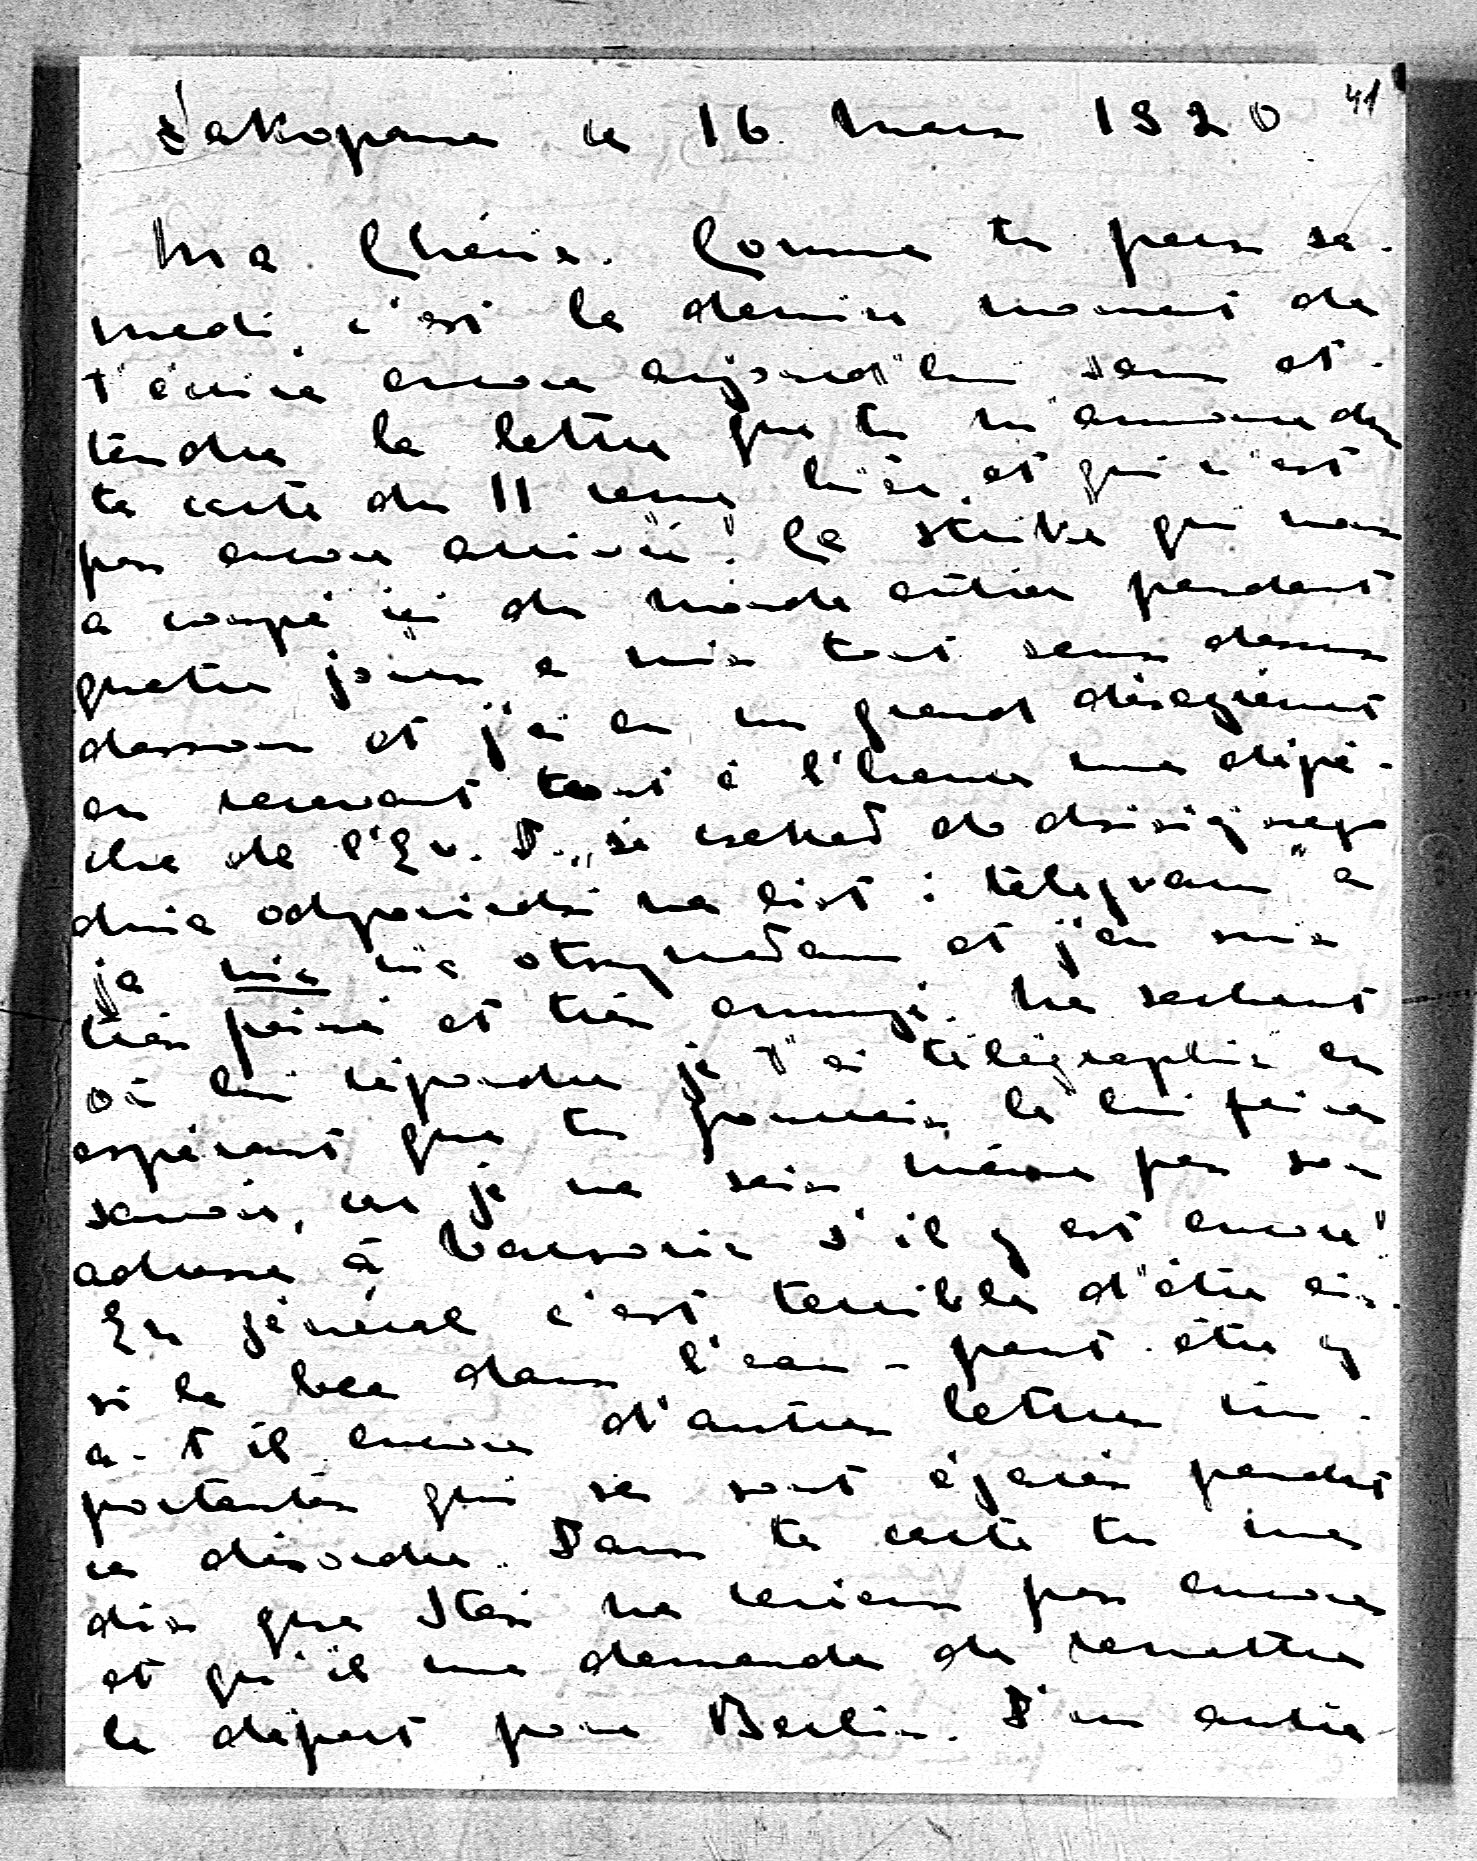 41
Zakopane le 16 Mars 1920
Ma Chérie. Comme tu pars sa-
medi, c'est le dernier moment de
t'écrire encore aujourd'hui sans at-
tendre la lettre que tu m'annonces de
ta carte du 11 reçue hier, et qui n'est
pas encore arrivée. La strike qui nous
a coupé ici du monde entier pendant
quatre jours a mis tout sens dessus
dessous et j'ai eu un grand désagrément
en recevant tout à l'heure une dépê-
che de l'Ev. T. „si czekał do dzisiejszego
dnia odpowiedzi na list i telegram" a
ja nic nie otrzymałam et j'en suis
très peiné et très ennuyé. Ne sachant
où lui répondre je t'ai télégraphié en
espérant que tu pourrais le lui faire
savoir, car je ne sais même pas son
adresse à Varsovie s'il y est encore!
En général c'est terrible d'être ain-
si le bec dans l'eau - peut-être y
a-t il encore d'autres lettres im-
portantes qui se sont égarées pendant
ce désordre. Dans ta carte tu me
dis que Stas ne revient pas encore
et qu'il me demande de remettre
le départ pour Berlin. D'un autre